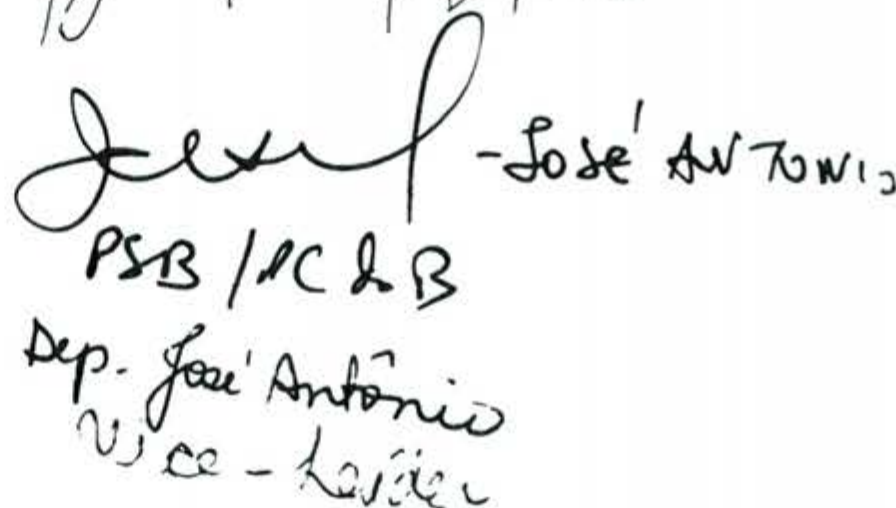 - José ANTONIO
PSB / PC do B
Dep. José Antônio
Vice-Líder